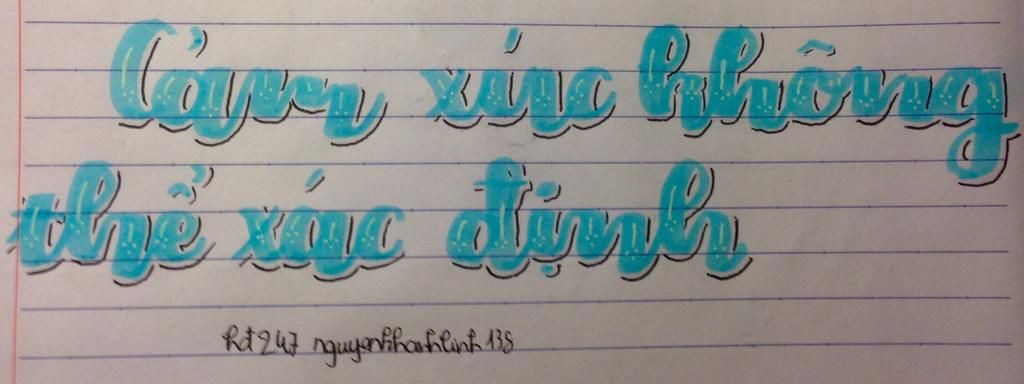 Cảm xúc không
thể xác định
hđ247 nguyenkhanhlinh138